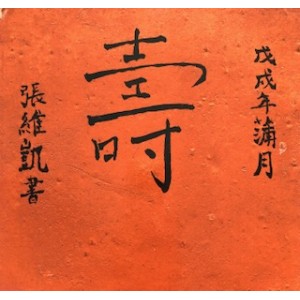 戊戌年蒲月
壽
張維凱書